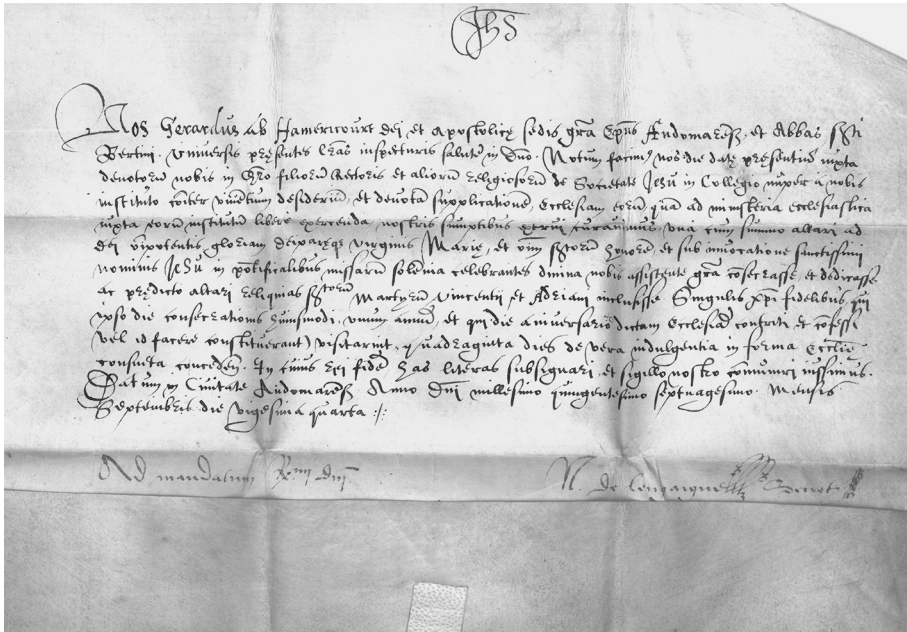 Jhs
Nos Gerardus ab Hamericourt dei et Apostolicę sedis gr̃a Ep̃us Audomareñ, et Abbas s̃ti
Bertini. Universis pręsentes l̃ras inspecturis salutẽ in Dño. Notum facim9 nos die datę pręsentiũ iuxta
devotorũ nobis in Chr̃o filiorũ Rectoris et aliorũ religiosorũ de Societate Jesu in Collegio nuper a nobis
instituto co͠iter viventium desideriũ, et devotã supplicationẽ, Ecclesiam eorũ, quã ad ministeria ecclesiastica
iuxta eorũ institutũ liberè exercenda, nostris sumptibus extrui curavimus, una cum summo altari ad
dei o͠ipotentis, gloriam deiparęqȝ virginis Marię, et o͠im s̃torũ honorẽ, et sub invocatione sanctissimi
nominis Jesu in põtificalibus missarũ solẽnia celebrantes divina nobis assistente gr̃a cõsecrasse, et dedicasse
ac prędicto altari reliquias s̃torũ Martyrũ Vincentii et Adriani inclusisse. Singulis Xp̃i fidelibus, qui
ipso die consecrationis huiusmodi, unum annũ, et qui die aniversario dictam Ecclesiã contriti, et cõfessi
vel id facere constituerant) visitarint, quadraginta dies de vera indulgentia in forma Ecclię
consueta concedeñ. In cuius rei fidẽ has literas subsignari, et sigillo nostro communiri iussimus.
Datum in Civitate Audomareñ Anno Dñi millesimo quingentesimo septuagesimo. Mensis
Septembris die vigesima quarta :/:
Ad mandatum R.mi Dñi
N. de